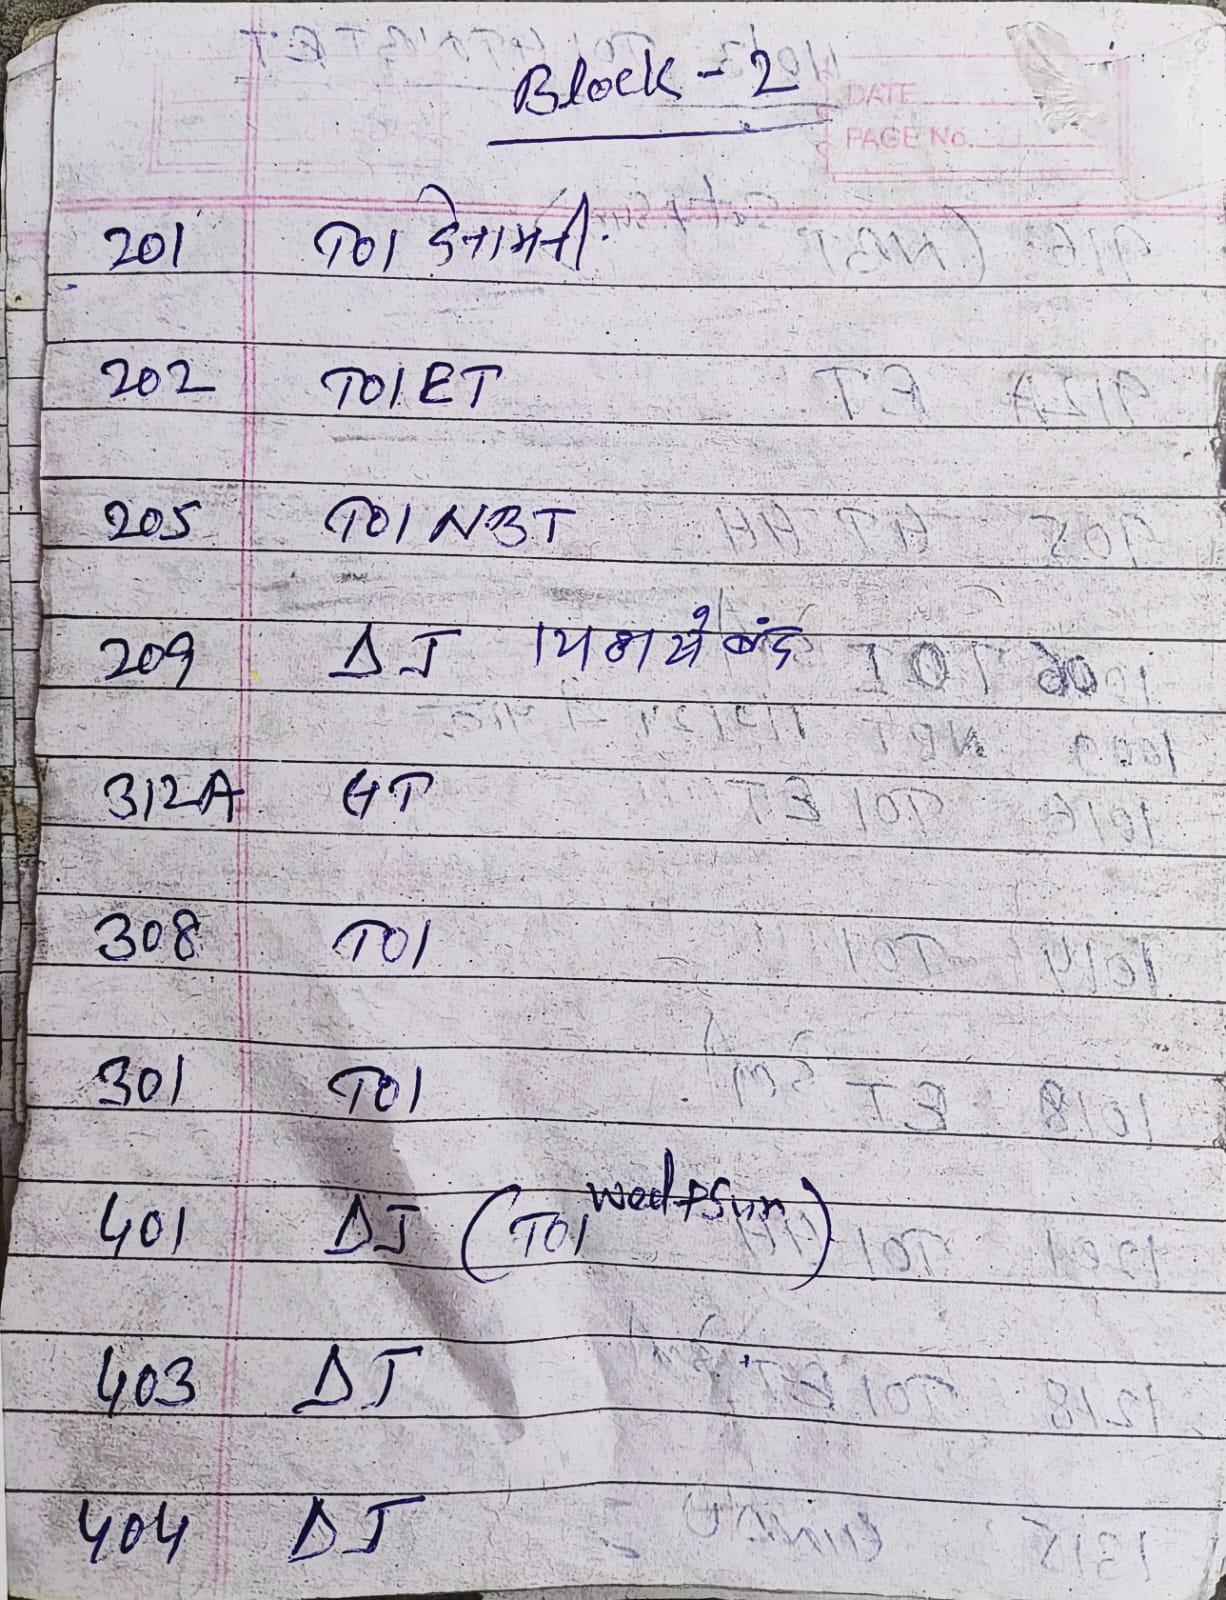 Block - 2
DATE
PAGE No.
201 TOI
202 TOI ET
205 TOI NBT
209 DJ से बंद
312A HT
308 TOI
301 TOI
401 DJ (TOI wed+Sun)
403 DJ
404 DJ